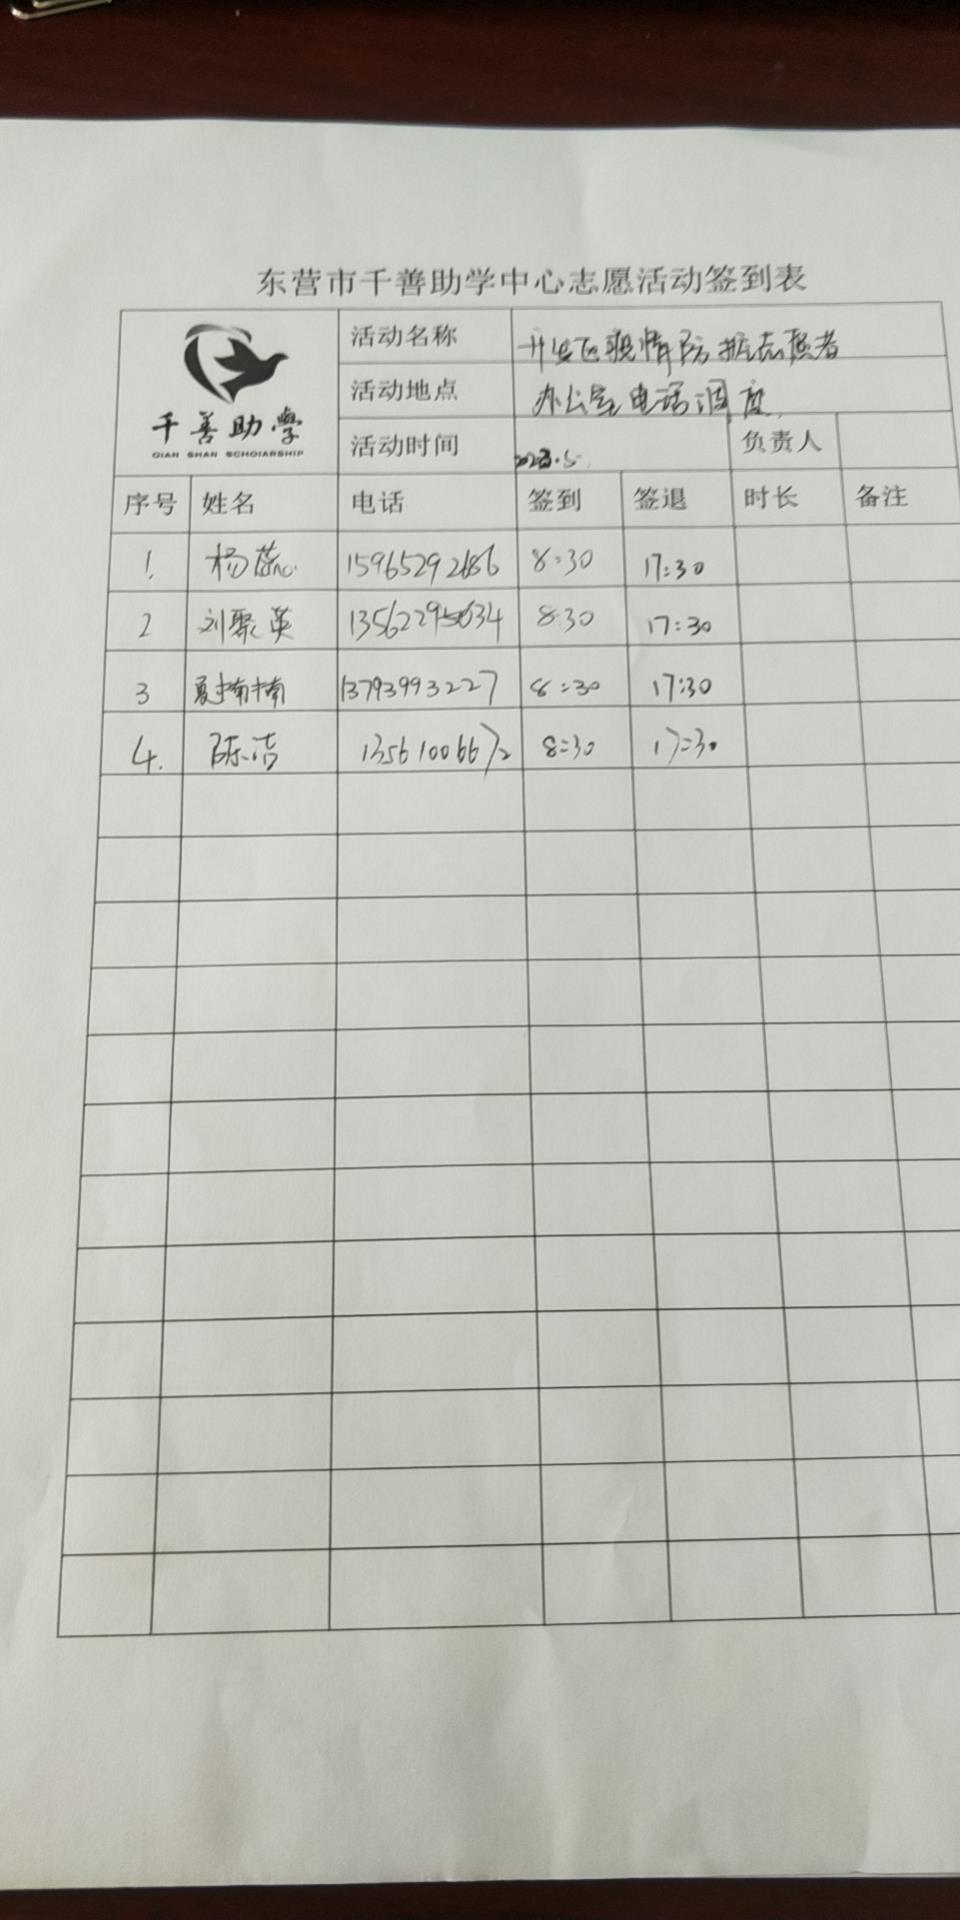 东营市千善助学中心志愿活动签到表
千善助学
QIAN SHAN SCHOlARSHIP
活动名称 开发区疫情防控志愿者
活动地点 办公室电话调度
活动时间 负责人
序号 姓名 电话 签到 签退 时长 备注
1. 杨 8:30 17:30
2 刘聚英 8:30 17:30
3 夏楠楠 13793993227 8:30 17:30
4. 陈洁 13561006672 8:30 17:30